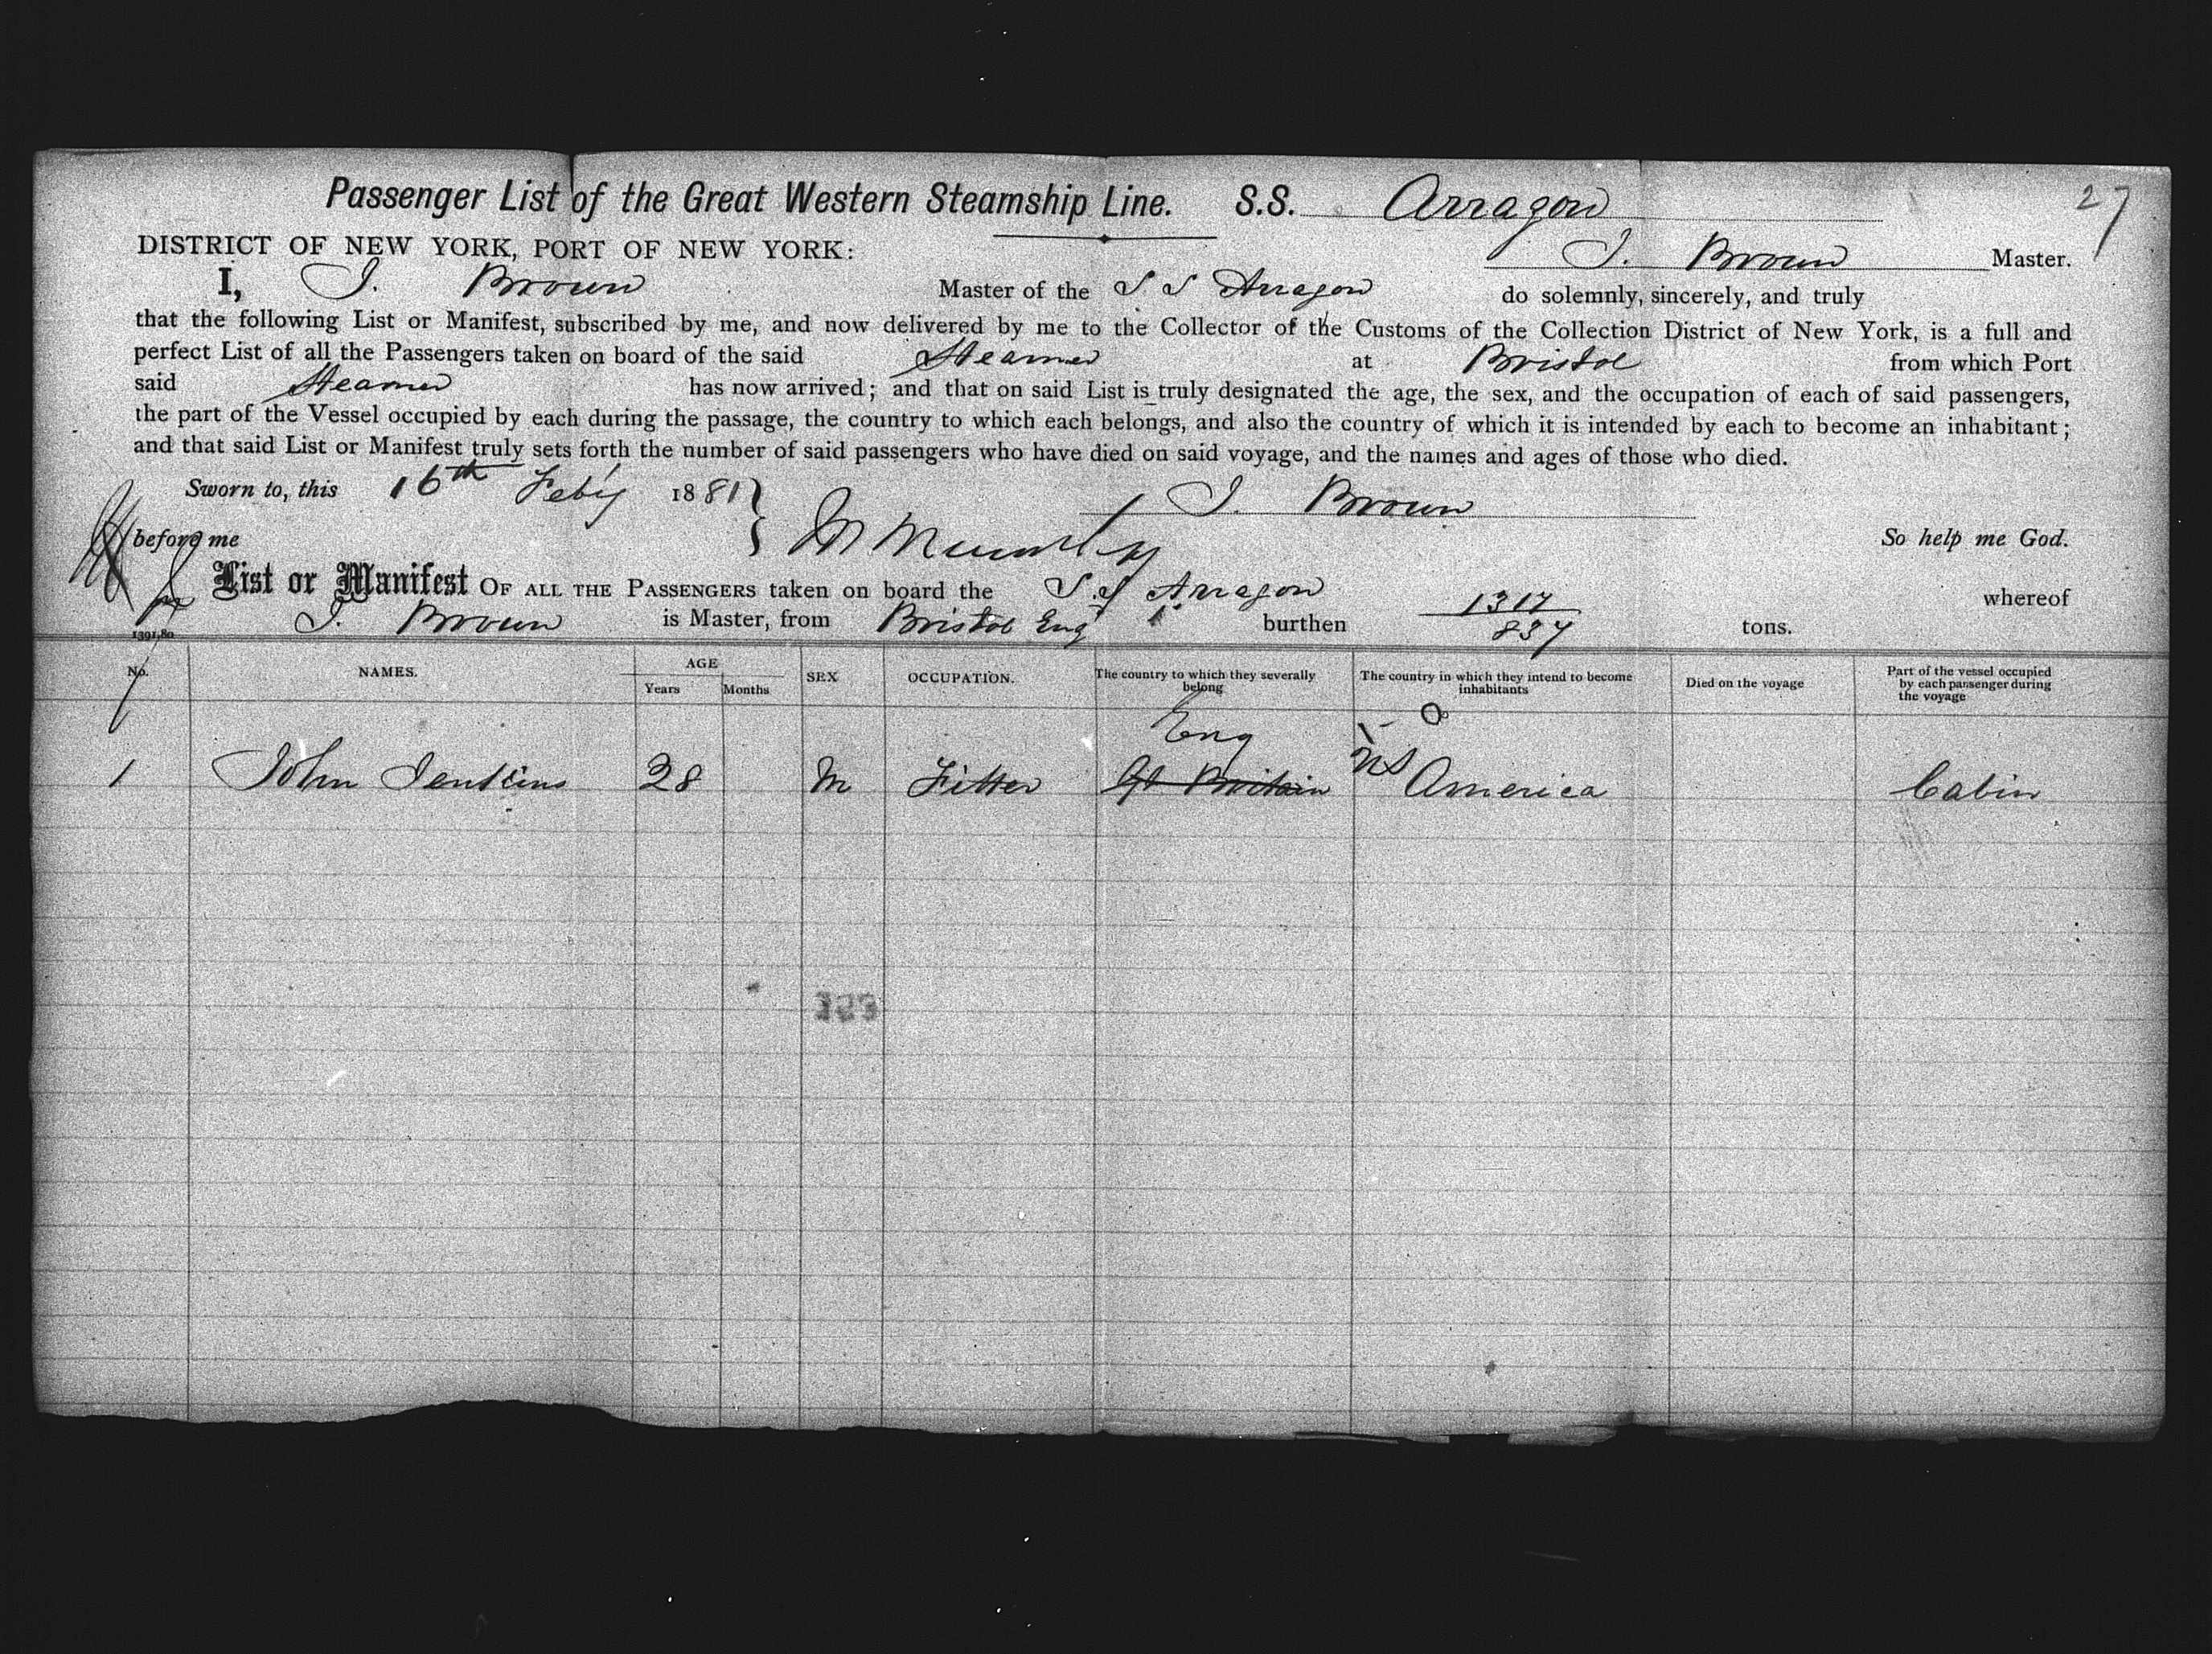 Passenger List of the Great Western Steamship Line. S.S. Arragon 27
DISTRICT OF NEW YORK, PORT OF NEW YORK: J. Brown Master.
I, J. Brown Master of the S S Arragon do solemnly, sincerely, and truly
that the following List or Manifest, subscribed by me, and now delivered by me to the Collector of the Customs of the Collection District of New York, is a full and
perfect List of all the Passengers taken on board of the said Steamer at Bristol from which Port
said Steamer has now arrived; and that on said List is truly designated the age, the sex, and the occupation of each of said passengers,
the part of the Vessel occupied by each during the passage, the country to which each belongs, and also the country of which it is intended by each to become an inhabitant;
and that said List or Manifest truly sets forth the number of said passengers who have died on said voyage, and the names and ages of those who died.
Sworn to, this 16th Feby 1881 } J. Brown
before me So help me God.
List or Manifest OF ALL THE PASSENGERS taken on board the S.S Arragon whereof
J. Brown is Master, from Bristol Eng burthen 1317 / 837 tons.
1391.80
No. NAMES. AGE Years Months SEX OCCUPATION. The country to which they severally belong The country in which they intend to become inhabitants Died on the voyage Part of the vessel occupied by each passenger during the voyage
Eng
1 John Jenkins 38 M Fitter Gt Britain US America Cabin